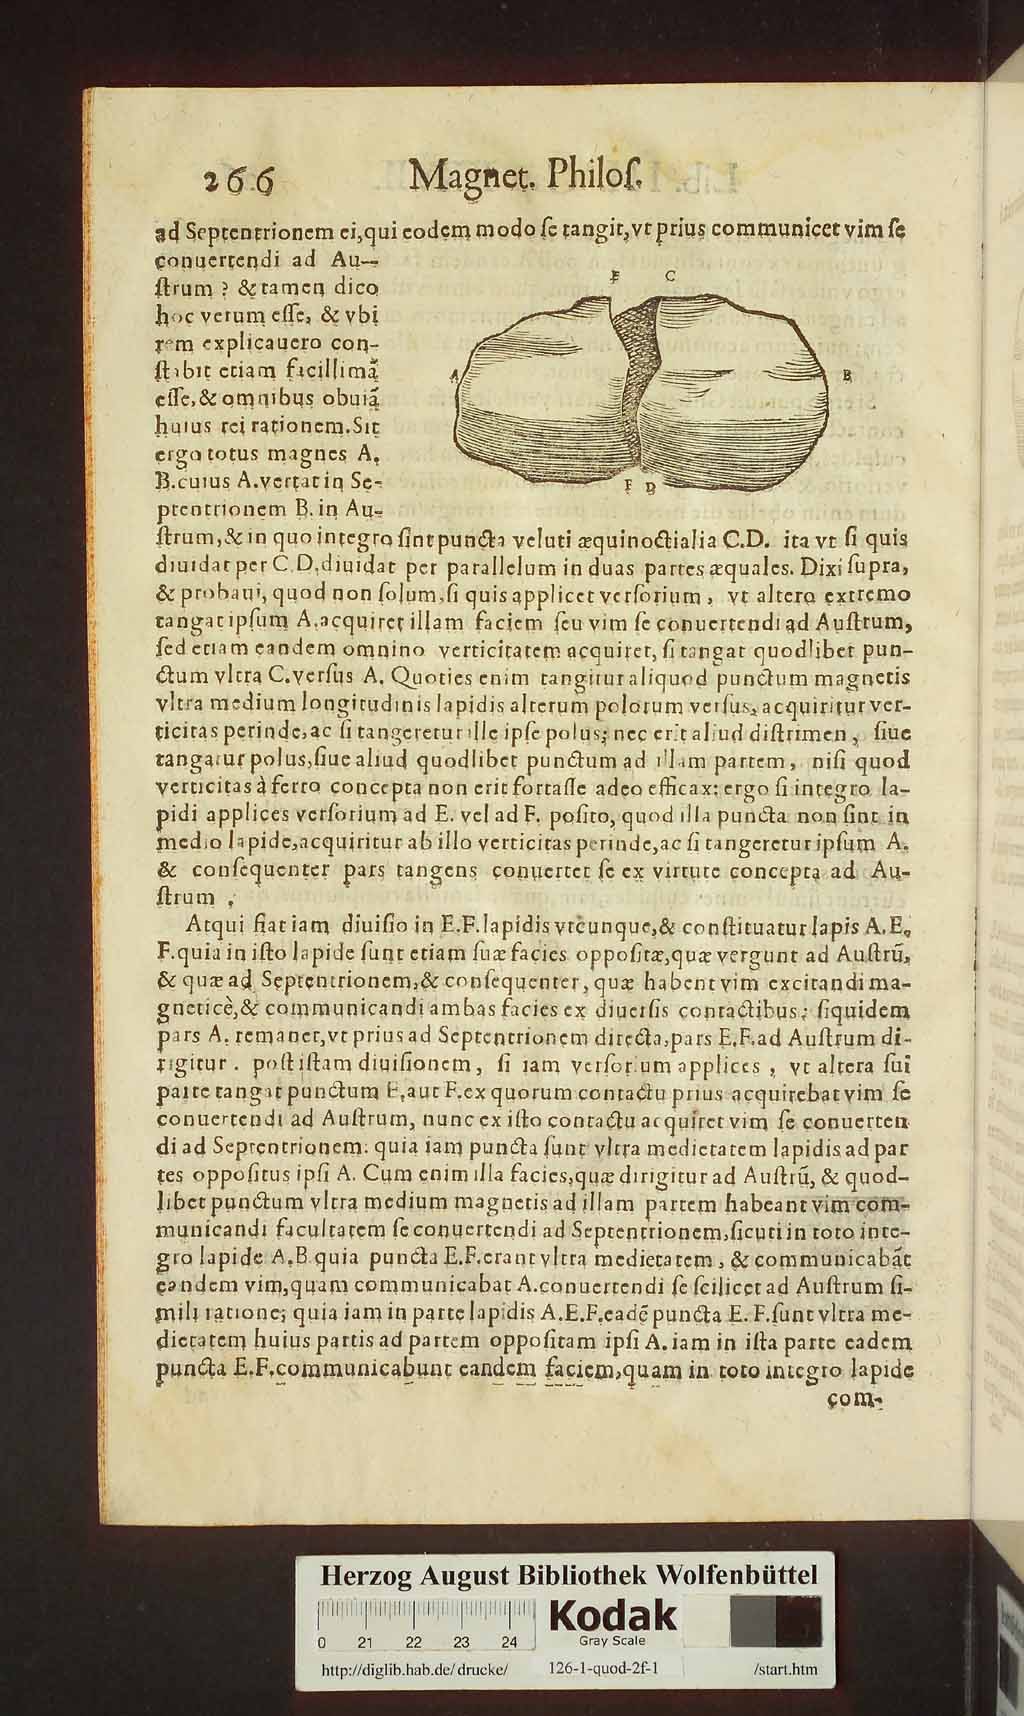 266 Magnet. Philoſ.
ad Septentrionem ei,qui eodem modo ſe tangit,vt prius communicet vim ſe
conuertendi ad Au-
ſtrum ? & tamen dico
hoc verum eſſe, & vbi
rem explicauero con-
ſtabit etiam facillimã
eſſe,& omnibus obuiã
huius rei rationem.Sit
ergo totus magnes A.
B.cuius A.vertat in Se-
ptentrionem B. in Au-
E C
A B
F D
ſtrum,& in quo integro ſint puncta veluti æquinoctialia C.D. ita vt ſi quis
diuidat per C.D.diuidat per parallelum in duas partes æquales. Dixi ſupra,
& probaui, quod non ſolum,ſi quis applicet verſorium , vt altero extremo
tangat ipſum A.acquiret illam faciem ſeu vim ſe conuertendi ad Auſtrum,
ſed etiam eandem omnino verticitatem acquiret, ſi tangat quodlibet pun-
ctum vltra C.verſus A. Quoties enim tangitur aliquod punctum magnetis
vltra medium longitudinis lapidis alterum polorum verſus, acquiritur ver-
ticitas perinde,ac ſi tangeretur ille ipſe polus; nec erit aliud diſtrimen , ſiue
tangatur polus,ſiue aliud quodlibet punctum ad illam partem, niſi quod
verticitas à ferro concepta non erit fortaſſe adeo efficax: ergo ſi integro la-
pidi applices verſorium ad E. vel ad F. poſito, quod illa puncta non ſint in
medio lapide,acquiritur ab illo verticitas perinde,ac ſi tangeretur ipſum A.
& conſequenter pars tangens conuertet ſe ex virtute concepta ad Au-
ſtrum .
Atqui fiat iam diuiſio in E.F.lapidis vtcunque,& conſtituatur lapis A.E.
F.quia in iſto lapide ſunt etiam ſuæ facies oppoſitæ,quæ vergunt ad Auſtrũ,
& quæ ad Septentrionem,& conſequenter, quæ habent vim excitandi ma-
gneticè,& communicandi ambas facies ex diuerſis contactibus; ſiquidem
pars A. remanet,vt prius ad Septentrionem directa,pars E.F.ad Auſtrum di-
rigitur . poſt iſtam diuiſionem, ſi iam verſorium applices , vt altera ſui
parte tangat punctum E,aut F.ex quorum contactu prius acquirebat vim ſe
conuertendi ad Auſtrum, nunc ex iſto contactu acquiret vim ſe conuerten
di ad Septentrionem: quia iam puncta ſunt vltra medietatem lapidis ad par
tes oppoſitus ipſi A. Cum enim illa facies,quæ dirigitur ad Auſtrũ, & quod-
libet punctum vltra medium magnetis ad illam partem habeant vim com-
municandi facultatem ſe conuertendi ad Septentrionem,ſicuti in toto inte-
gro lapide A.B.quia puncta E.F.erant vltra medietatem , & communicabãt
eandem vim,quam communicabat A.conuertendi ſe ſcilicet ad Auſtrum ſi-
mili ratione; quia iam in parte lapidis A.E.F.eadẽ puncta E.F.ſunt vltra me-
dietatem huius partis ad partem oppoſitam ipſi A.iam in iſta parte eadem
puncta E.F.communicabunt eandem faciem,quam in toto integro lapide
com-
Herzog August Bibliothek Wolfenbüttel
0 21 22 23 24
Kodak
Gray Scale
http://diglib.hab.de/drucke/ 126-1-quod-2f-1 /start.htm